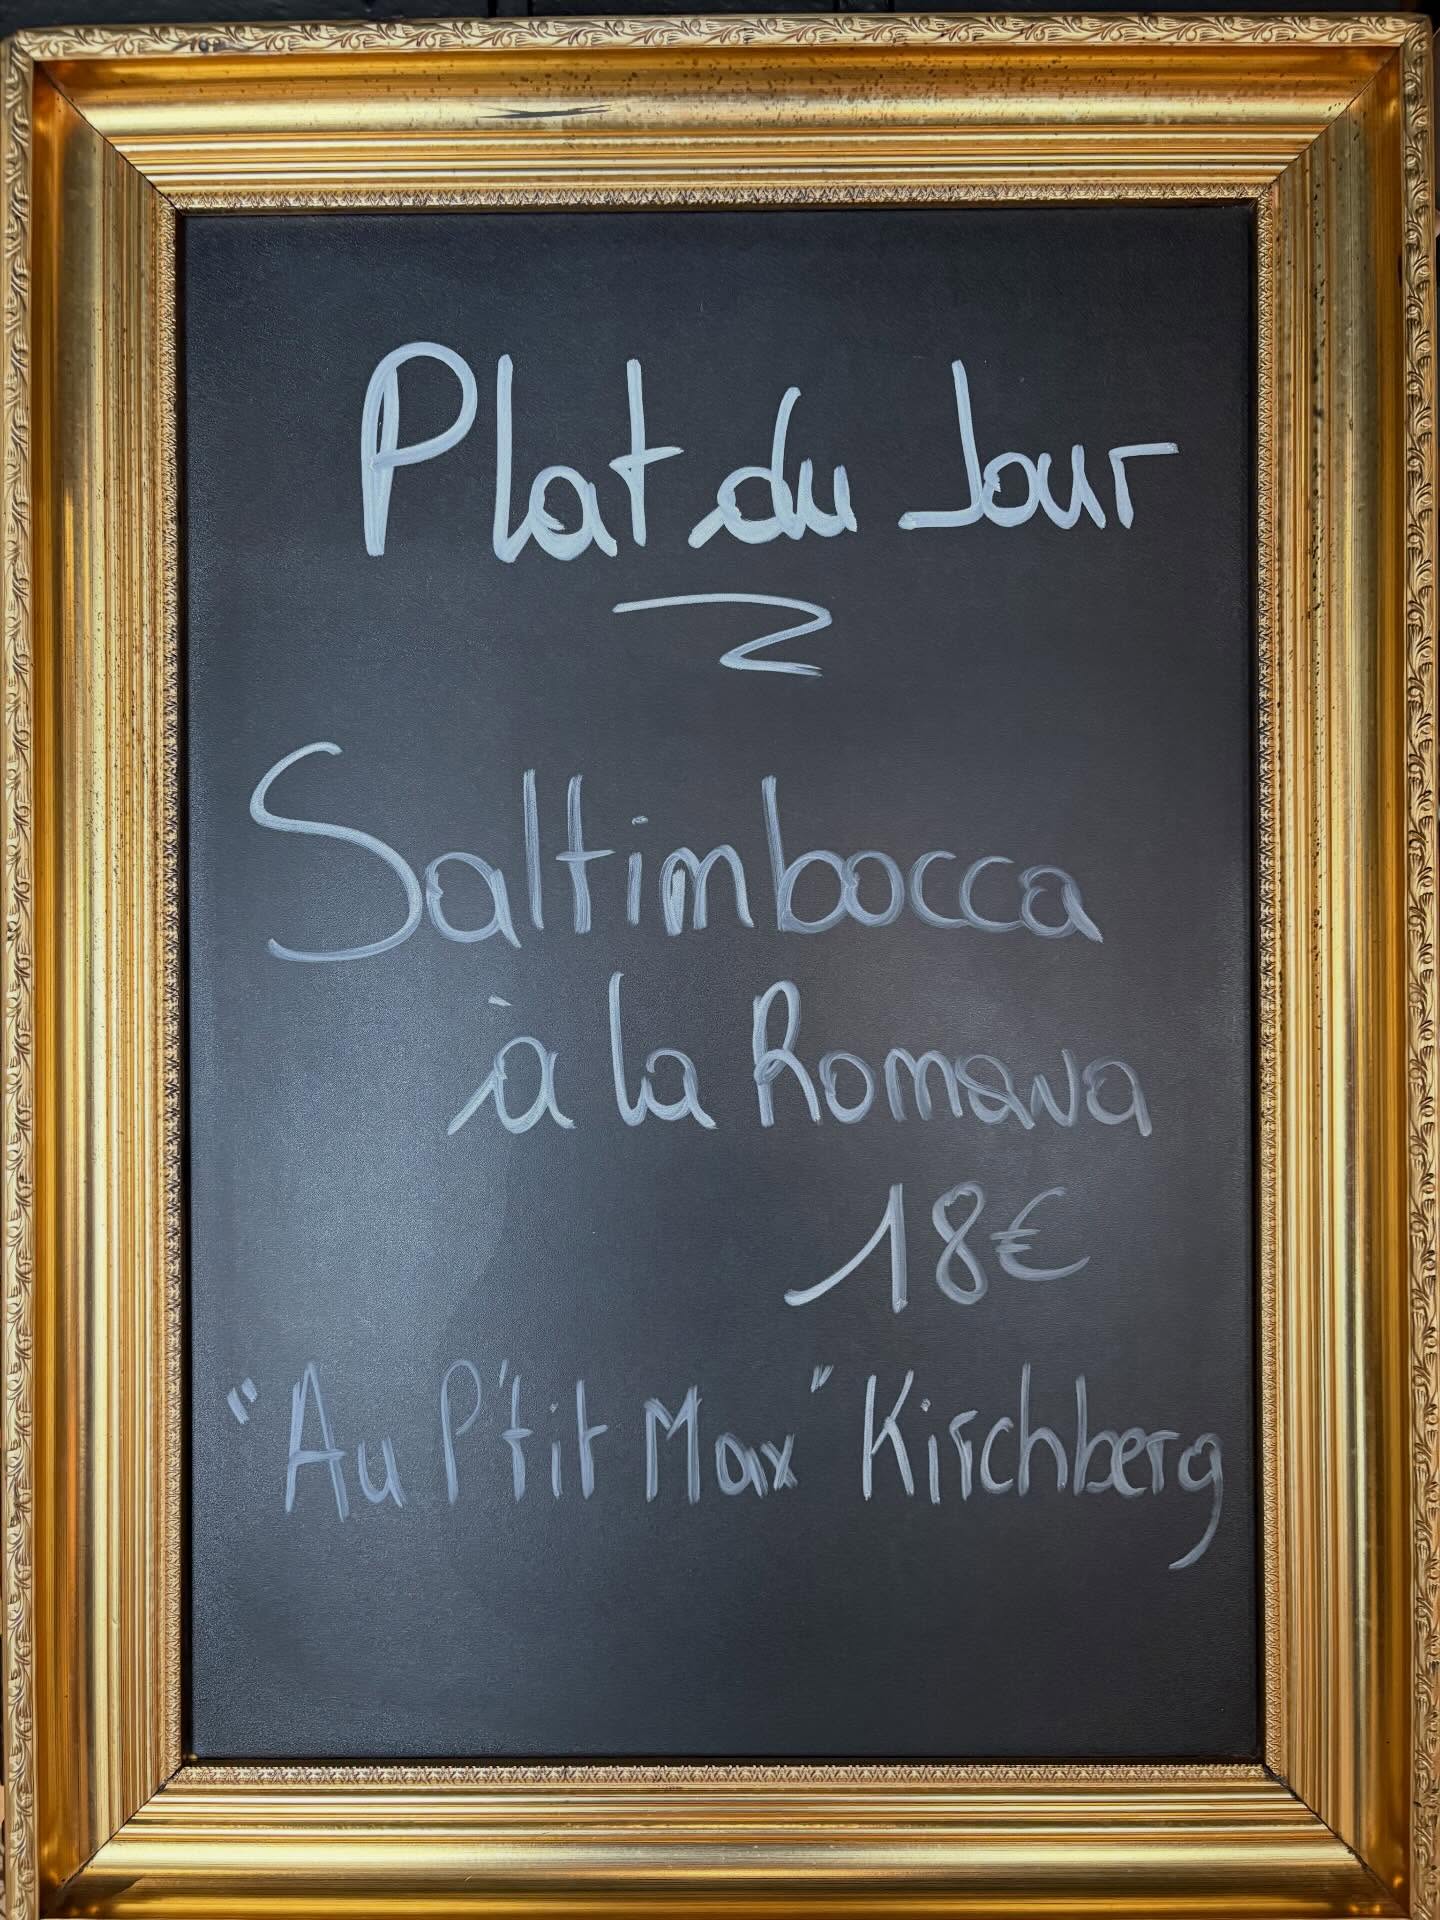 Plat du Jour
Saltimbocca
à la Romana
18€
"Au P'tit Max" Kirchberg